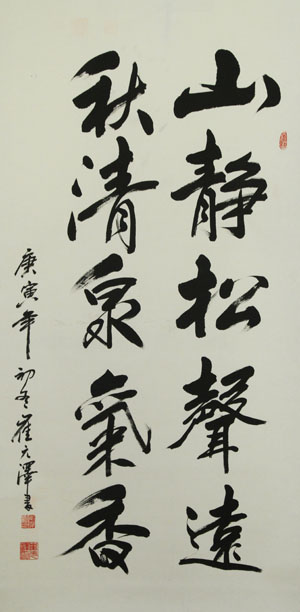 山靜松聲遠
秋清泉氣香
庚寅年初冬崔元澤書